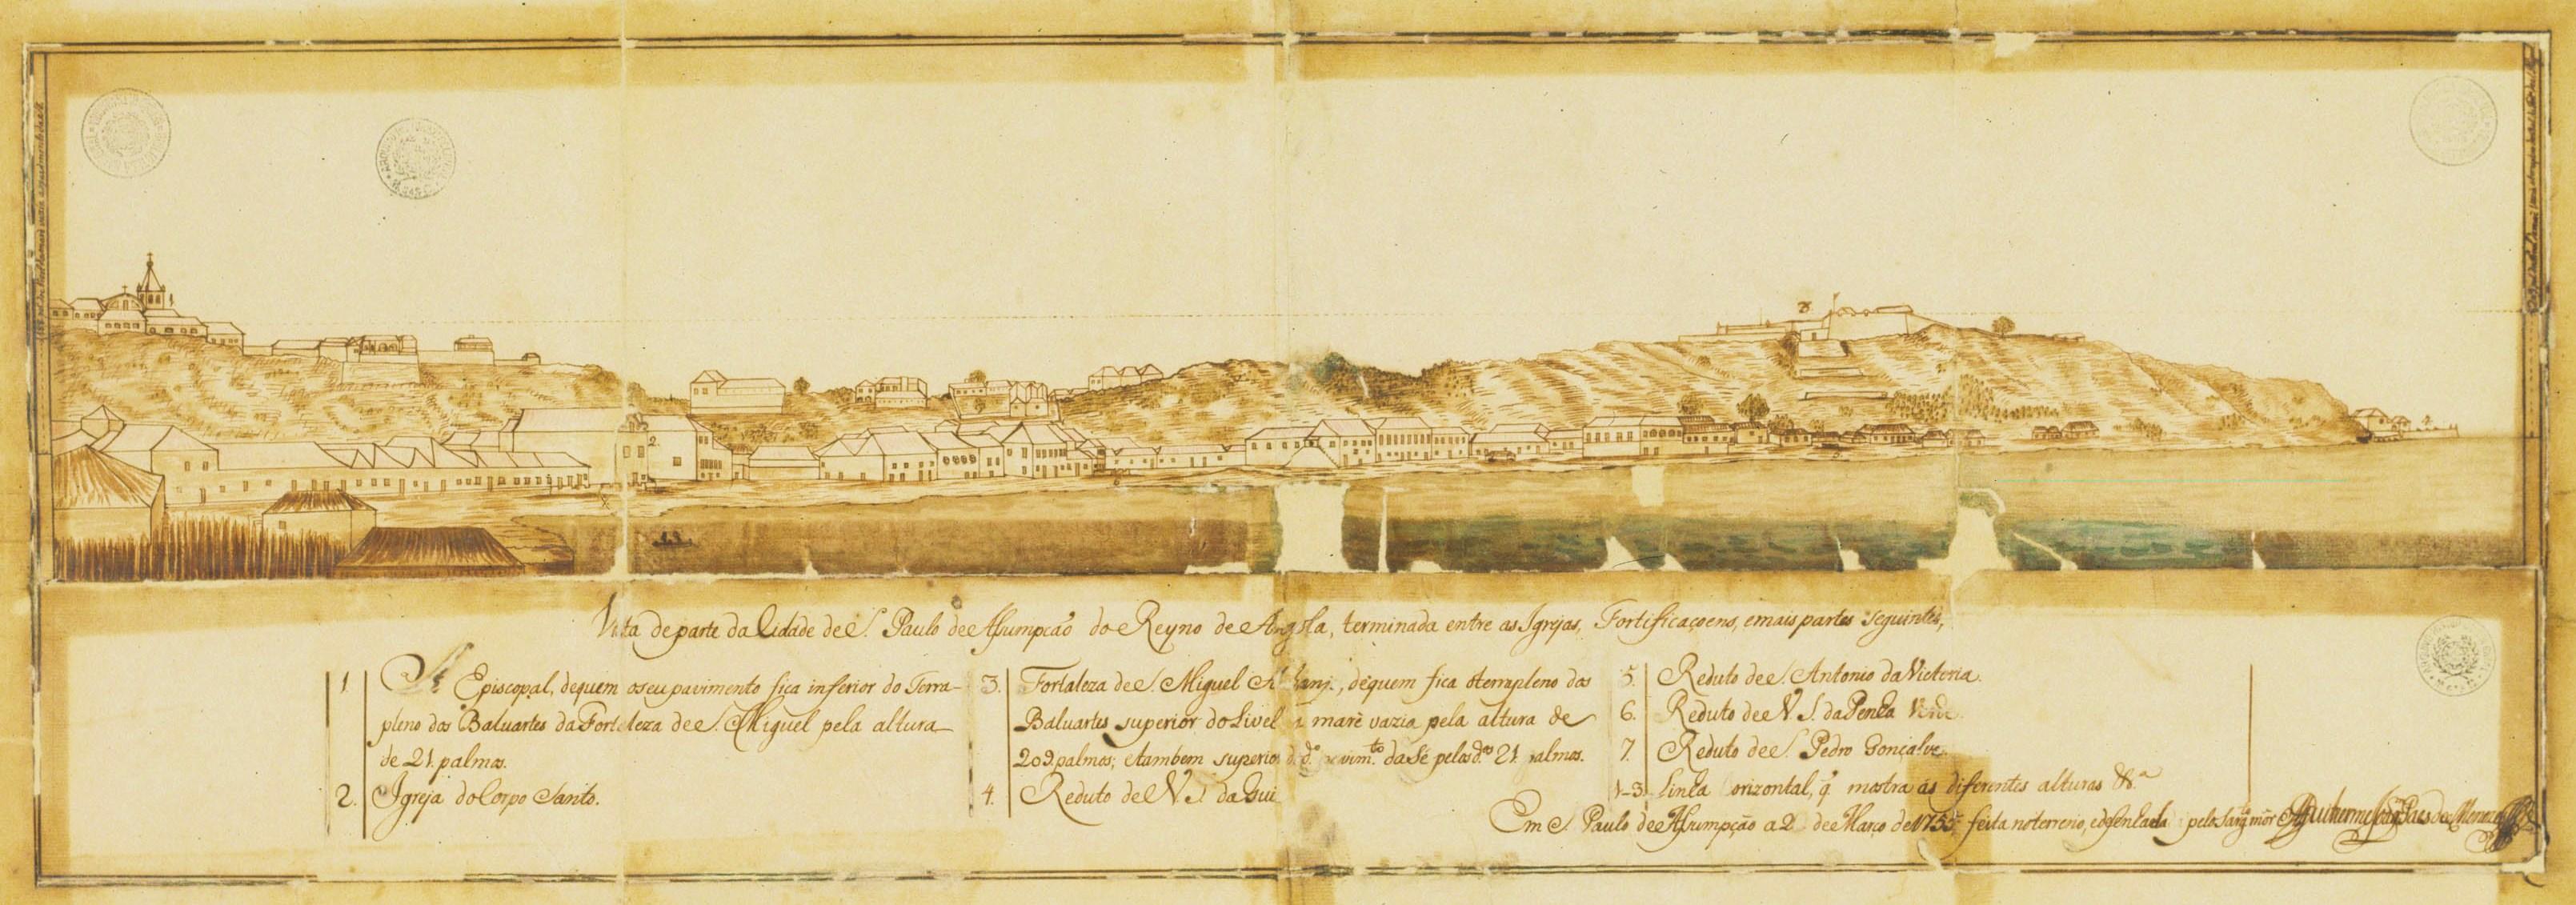 Vista de parte da Cidade de S. Paulo de Assumpcaõ do Reyno de Angola, terminada entre as Igrejas, Fortificaçoens, e mais partes seguintes,
1. Sé Episcopal, de quem o seu pavimento fica inferior do Terra-
pleno dos Baluartes da Fortaleza de S. Miguel pela altura
de 21. palmos.
2. Igreja do Corpo Santo.
3. Fortaleza de S. Miguel, de quem fica o terrapleno dos
Baluartes superior do Livel a marè vazia pela altura de
209. palmos; e tambem superior d. d.º vim.to da Sé pelos d.os 21. palmos.
4. Reduto de N. S. da Gui
5. Reduto de S. Antonio da Victoria.
6. Reduto de N. S. da Penha
7. Reduto de S. Pedro Gonçalve
1-3. Linha orizontal, q̃ mostra as diferentes alturas &.ª
Em S. Paulo de Assumpção a 2 de Março de 1755 feita no terreno, e desenhada pelo Sarg.to mór Guilherme Paes de Menezes